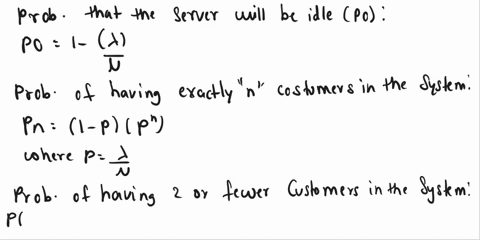 Prob. that the Server will be idle (P0):
P0 = 1 - (λ)/μ
Prob. of having exactly "n" costumers in the System:
Pn = (1-p)(pⁿ)
where p = λ/μ
Prob. of having 2 or fewer Customers in the System:
P(